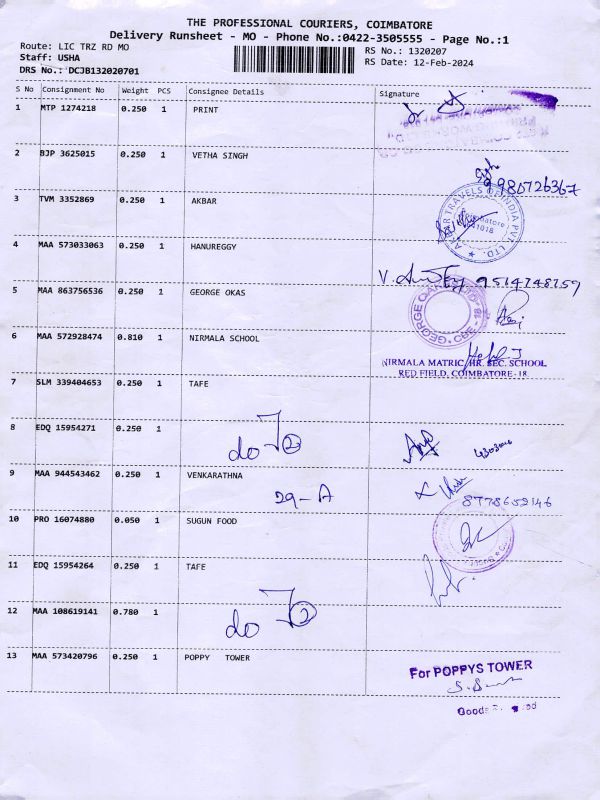 THE PROFESSIONAL COURIERS, COIMBATORE
Delivery Runsheet - MO - Phone No.:0422-3505555 - Page No.:1
Route: LIC TRZ RD MO
RS No.: 1320207
Staff: USHA
RS Date: 12-Feb-2024
DRS No.: DCJB132020701
S No Consignment No Weight PCS Consignee Details Signature
1 MTP 1274218 0.250 1 PRINT
2 BJP 3625015 0.250 1 VETHA SINGH
3 TVM 3352869 0.250 1 AKBAR
AKBAR TRAVELS OF INDIA PVT. LTD.
Coimbatore
641018
4 MAA 573033063 0.250 1 HANUREGGY
9514748159
5 MAA 863756536 0.250 1 GEORGE OKAS
6 MAA 572928474 0.810 1 NIRMALA SCHOOL
NIRMALA MATRIC. HR. SEC. SCHOOL
RED FIELD, COIMBATORE-18
7 SLM 339404653 0.250 1 TAFE
8 EDQ 15954271 0.250 1 do 2
9 MAA 944543462 0.250 1 VENKARATHNA
29-A
8778652146
10 PRO 16074880 0.050 1 SUGUN FOOD
11 EDQ 15954264 0.250 1 TAFE
12 MAA 108619141 0.780 1 do 2
13 MAA 573420796 0.250 1 POPPY TOWER
For POPPYS TOWER
Goods